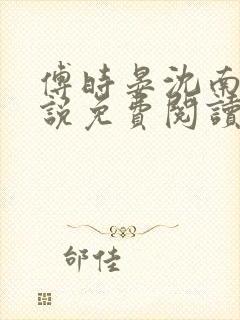 傅時晏沈南
說免費閱讀
邰佳